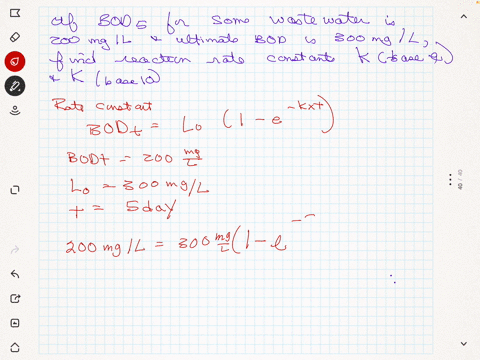 If BOD5 for some waste water is
200 mg/L & ultimate BOD is 300 mg/L,
find reaction rate constants K (base e)
& K (base 10)
Rate constant
BODt = Lo (1 - e^-kxt)
BODt = 200 mg/L
Lo = 300 mg/L
t = 5 day
200 mg/L = 300 mg/L (1 - e^-
40 / 40